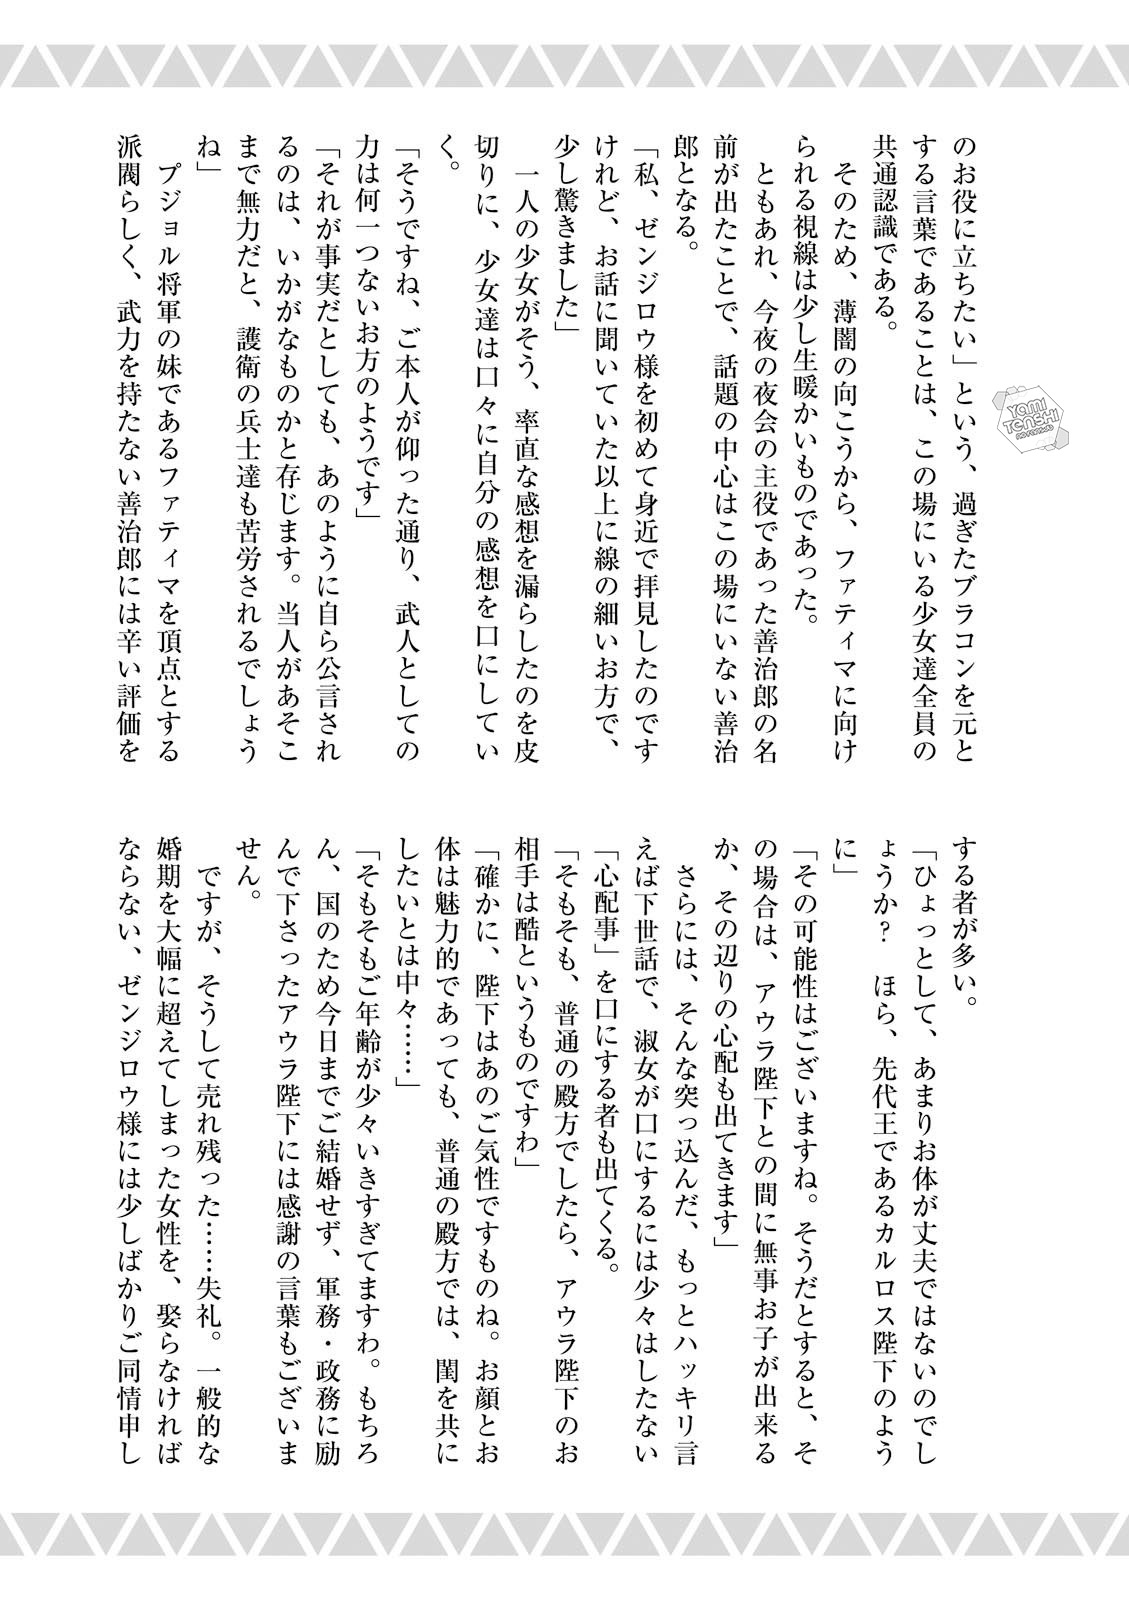 のお役に立ちたい」という、過ぎたブラコンを元と
する言葉であることは、この場にいる少女達全員の
共通認識である。
　そのため、薄闇の向こうから、ファティマに向け
られる視線は少し生暖かいものであった。
　ともあれ、今夜の夜会の主役であった善治郎の名
前が出たことで、話題の中心はこの場にいない善治
郎となる。
「私、ゼンジロウ様を初めて身近で拝見したのです
けれど、お話に聞いていた以上に線の細いお方で、
少し驚きました」
　一人の少女がそう、率直な感想を漏らしたのを皮
切りに、少女達は口々に自分の感想を口にしてい
く。
「そうですね、ご本人が仰った通り、武人としての
力は何一つないお方のようです」
「それが事実だとしても、あのように自ら公言され
るのは、いかがなものかと存じます。当人があそこ
まで無力だと、護衛の兵士達も苦労されるでしょう
ね」
　プジョル将軍の妹であるファティマを頂点とする
派閥らしく、武力を持たない善治郎には辛い評価を
する者が多い。
「ひょっとして、あまりお体が丈夫ではないのでし
ょうか？　ほら、先代王であるカルロス陛下のよう
に」
「その可能性はございますね。そうだとすると、そ
の場合は、アウラ陛下との間に無事お子が出来る
か、その辺りの心配も出てきます」
　さらには、そんな突っ込んだ、もっとハッキリ言
えば下世話で、淑女が口にするには少々はしたない
「心配事」を口にする者も出てくる。
「そもそも、普通の殿方でしたら、アウラ陛下のお
相手は酷というものですわ」
「確かに、陛下はあのご気性ですものね。お顔とお
体は魅力的であっても、普通の殿方では、閨を共に
したいとは中々……」
「そもそもご年齢が少々いきすぎてますわ。もちろ
ん、国のため今日までご結婚せず、軍務・政務に励
んで下さったアウラ陛下には感謝の言葉もございま
せん。
　ですが、そうして売れ残った……失礼。一般的な
婚期を大幅に超えてしまった女性を、娶らなければ
ならない、ゼンジロウ様には少しばかりご同情申し
YAMI
TENSHI